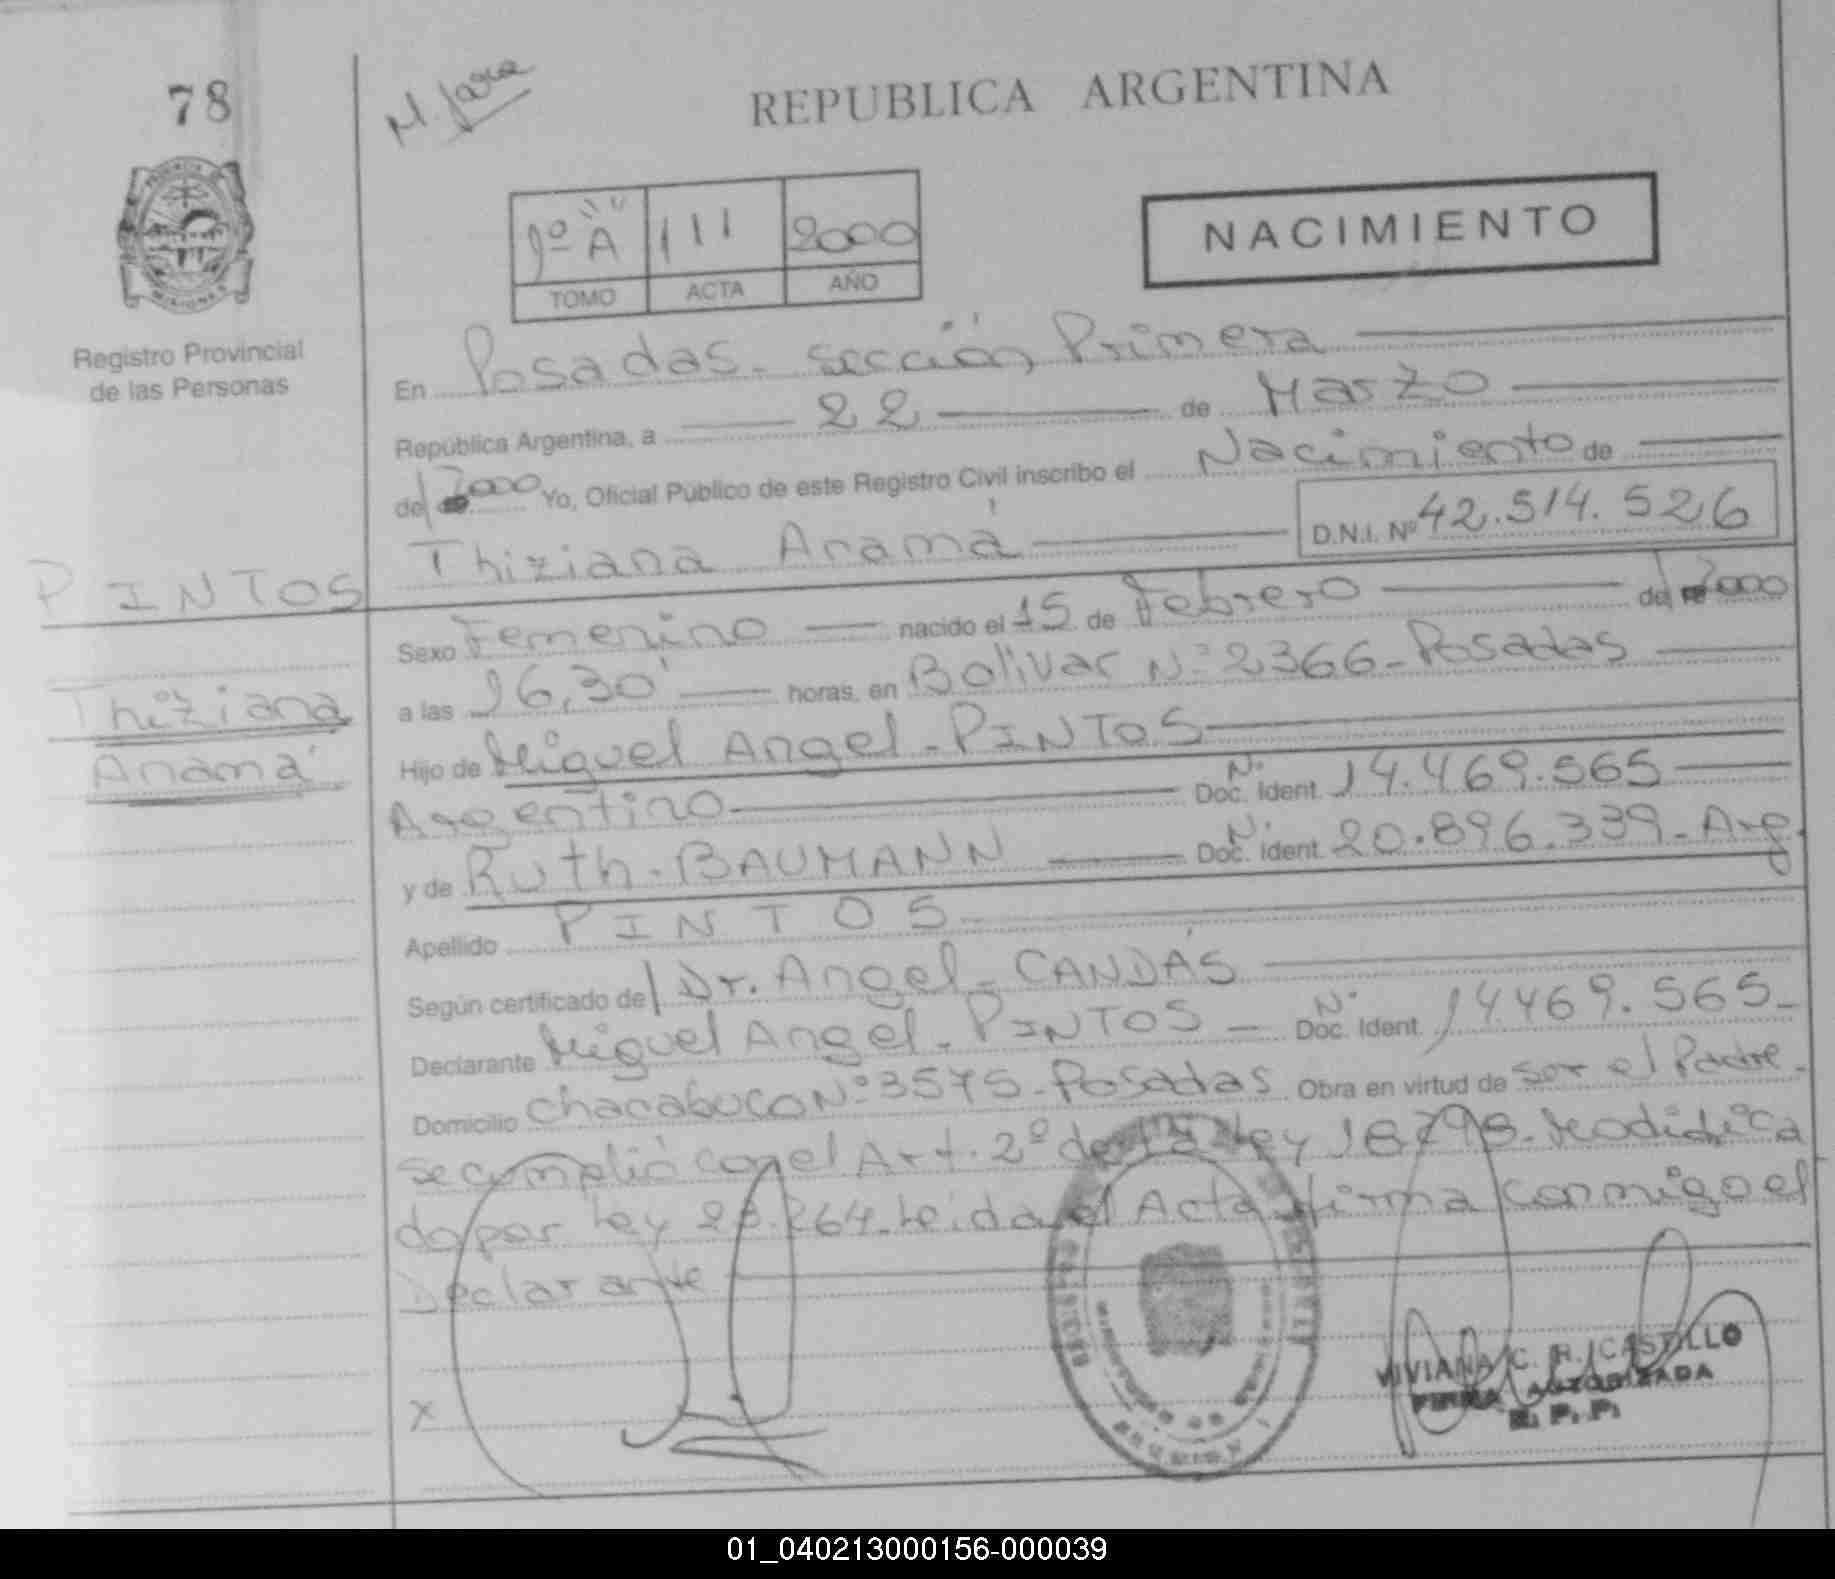 78
M. Jara
REPUBLICA ARGENTINA
PROVINCIA DE
MISIONES
1º "A" 111 2000
TOMO ACTA AÑO
NACIMIENTO
Registro Provincial
de las Personas
En Posadas - sección Primera
República Argentina, a 22 de Marzo
de 2000 Yo, Oficial Público de este Registro Civil inscribo el Nacimiento de
Thiziana Anamá D.N.I. Nº 42.514.526
PINTOS
Thiziana
Anamá
Sexo Femenino nacido el 15 de Febrero de 2000
a las 16,30' horas, en Bolivar Nº 2366 - Posadas
Hijo de Miguel Angel - PINTOS
Argentino Nº Doc. Ident. 14.469.565
y de Ruth - BAUMANN Nº Doc. Ident. 20.896.339 - Arg.
Apellido PINTOS
Según certificado de Dr. Angel - CANDÁS
Declarante Miguel Angel - PINTOS - Nº Doc. Ident. 14.469.565 -
Domicilio Chacabuco Nº 3575 - Posadas Obra en virtud de ser el Padre -
se cumplió con el Art. 2º de la Ley 18.248 - Modifica
do por Ley 23.264 - Leida el Acta firma conmigo el
Declarante
X
VIVIANA C. R. CASTILLO
FIRMA AUTORIZADA
R. P. P.
01_040213000156-000039